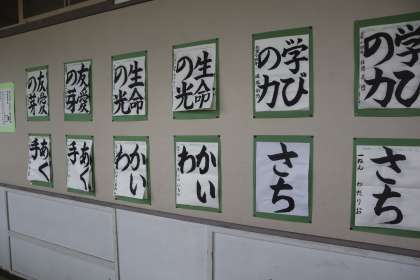 友愛
の芽
友愛
の芽
生命
の光
生命
の光
学び
の力
学び
の力
あく
手
あく
手
かい
わ
かい
わ
さち
さち
一ねん